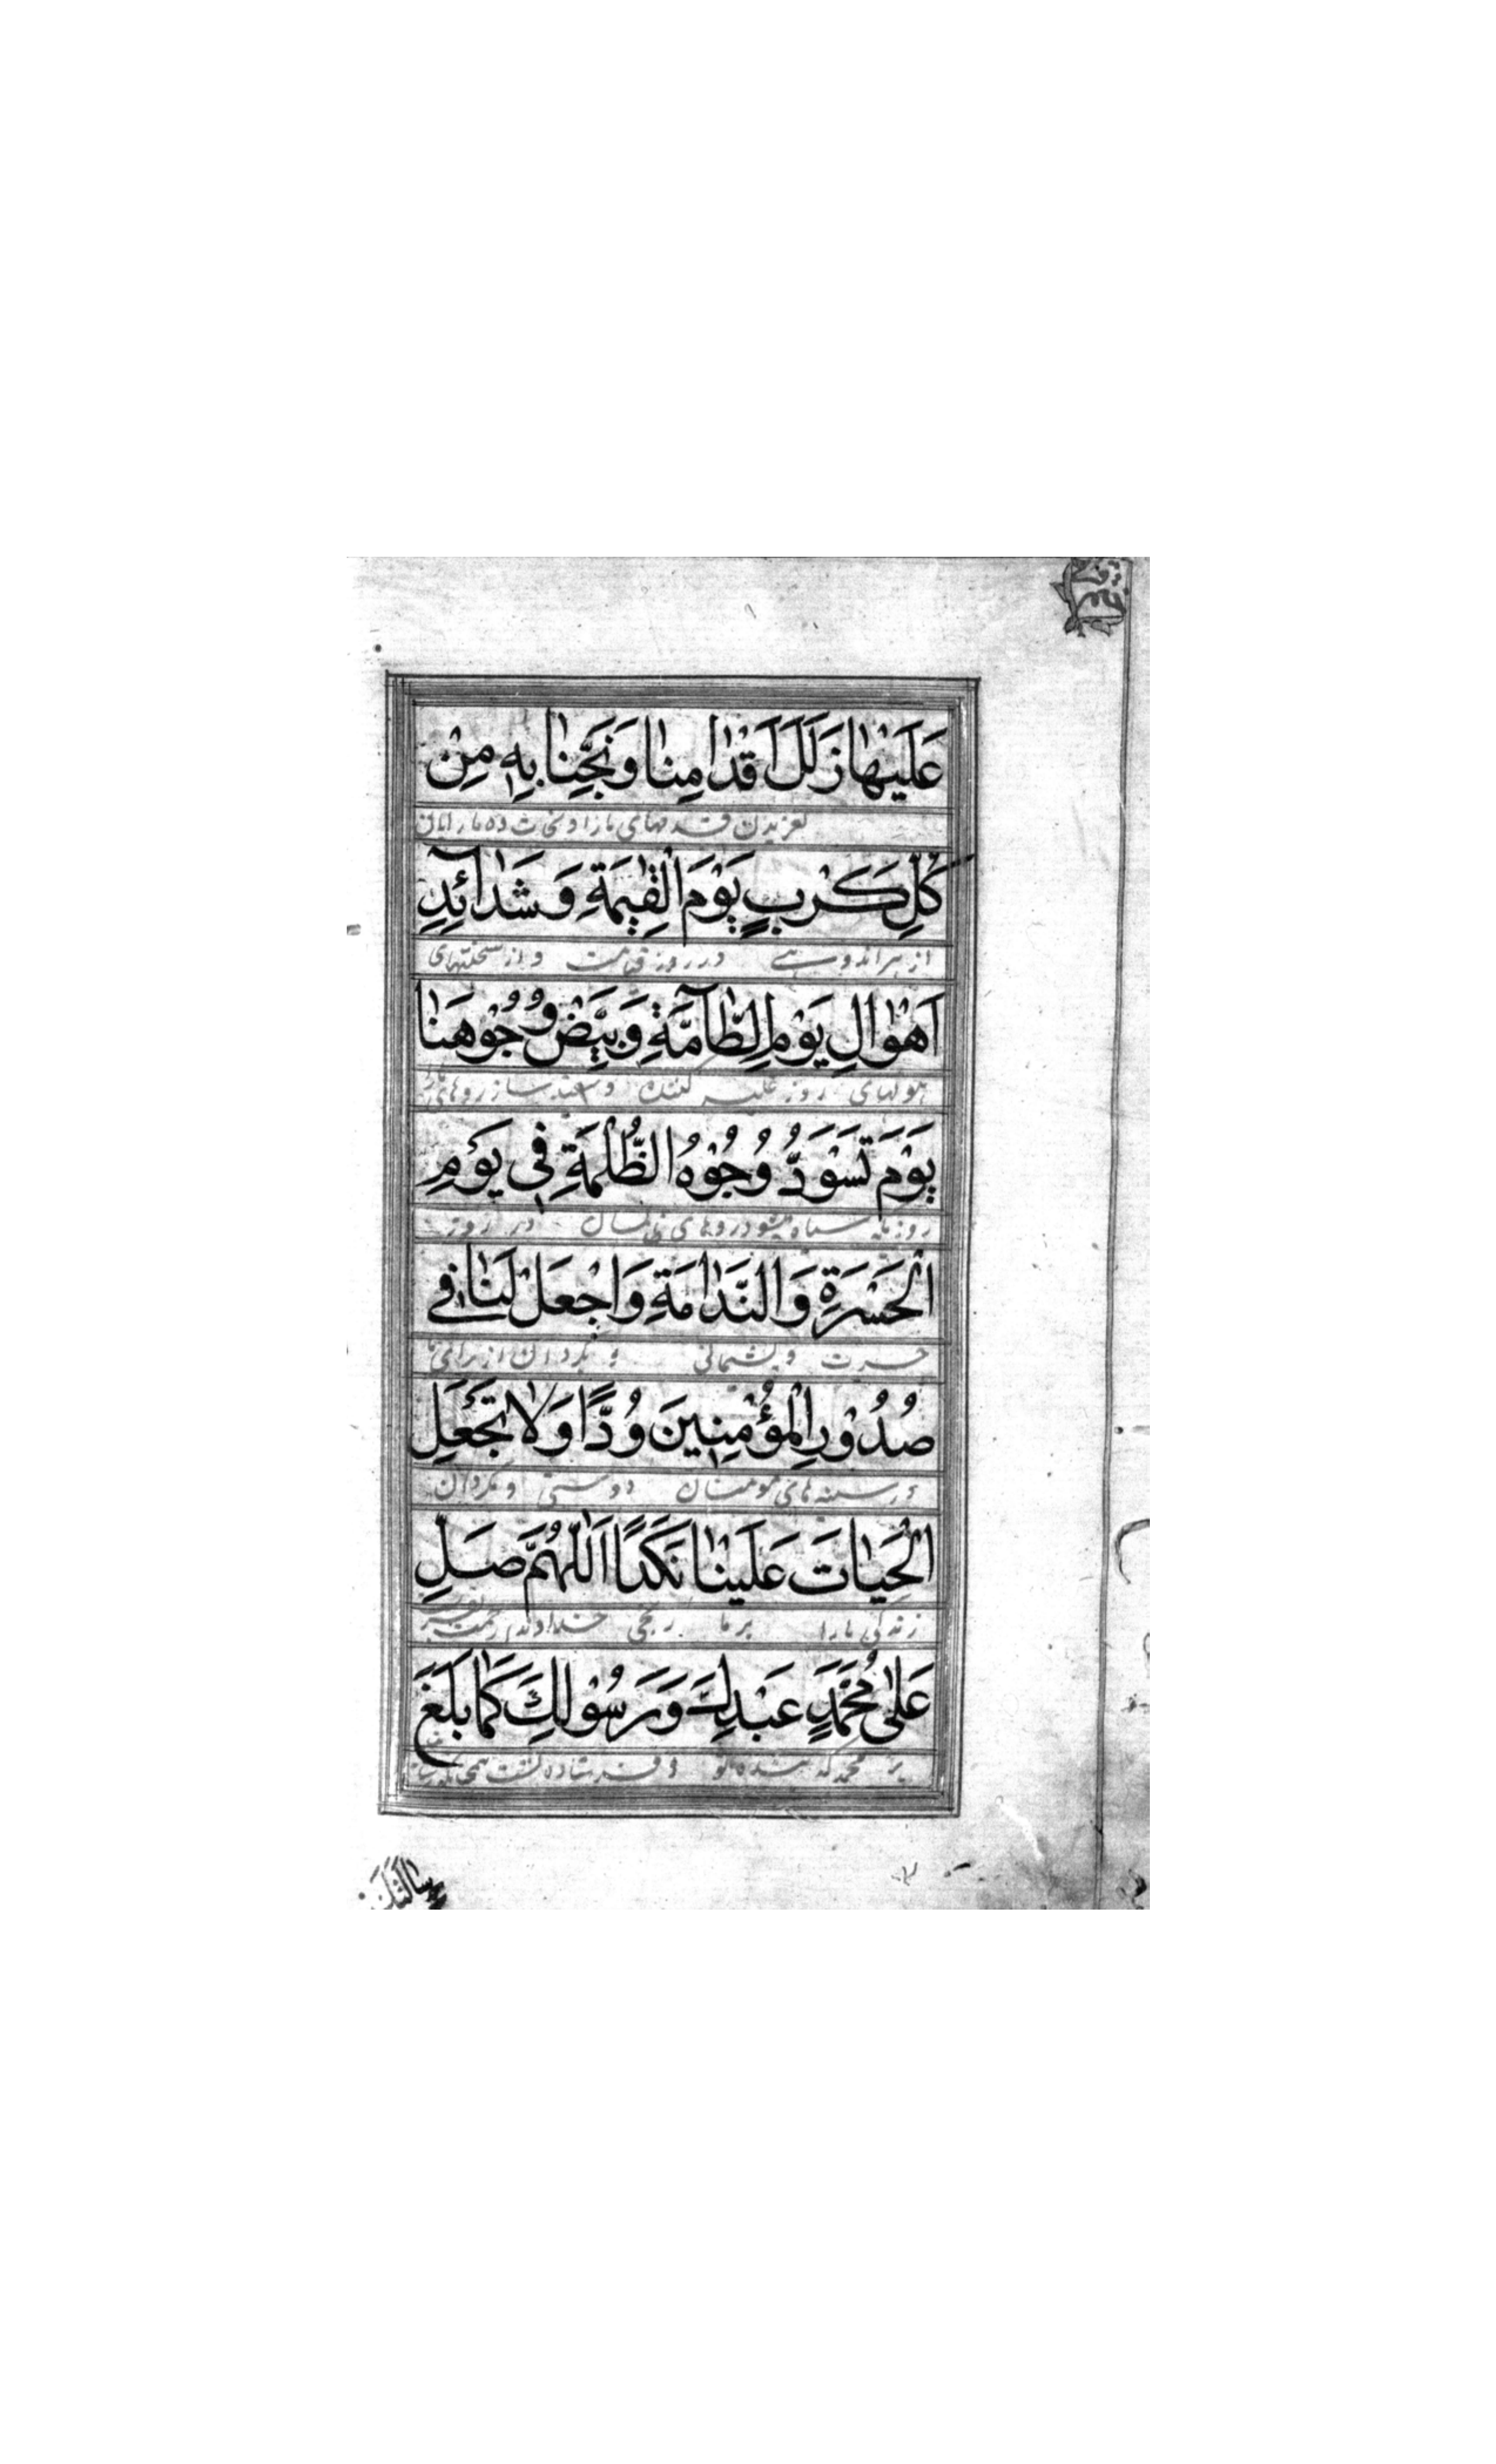 عَلَيْهٰا زَلَلَ اَقْدٰامِنٰا وَنَجِّنٰا بِهِ مِنْ
لغزیدن قدمهای ما را و نجات ده ما را بآن
كُلِّ كَرْبٍ يَوْمَ الْقِيٰمَةِ وَشَدٰآئِدِ
از هر اندوهی در روز قیامت و از سختیهای
اَهْوٰالِ يَوْمِ الطّٰآمَّةِ وَبَيِّضْ وُجُوْهَنٰا
هولهای روز غلبه کننده و سفید ساز روهای ما را
يَوْمَ تَسْوَدُّ وُجُوْهُ الظُّلَمَةِ فِي يَوْمِ
روزیکه سیاه میشود روهای ظالمان در روز
الْحَسْرَةِ وَالنَّدٰامَةِ وَاجْعَلْ لَنٰا فِے
حسرت و پشیمانی و بگردان از برای ما
صُدُوْرِ الْمُؤْمِنِينَ وُدًّا وَلٰا تَجْعَلِ
در سینه های مومنان دوستی و مگردان
الْحَيٰاتَ عَلَيْنٰا نَكَدًا اَللّٰهُمَّ صَلِّ
زندگی ما را بر ما رنجی خداوندا رحمت
عَلىٰ مُحَمَّدٍ عَبْدِكَ وَرَسُوْلِكَ كَمٰا بَلَّغَ
بر محمد که بنده تو و فرستاده تست
رِسٰالَتَكَ